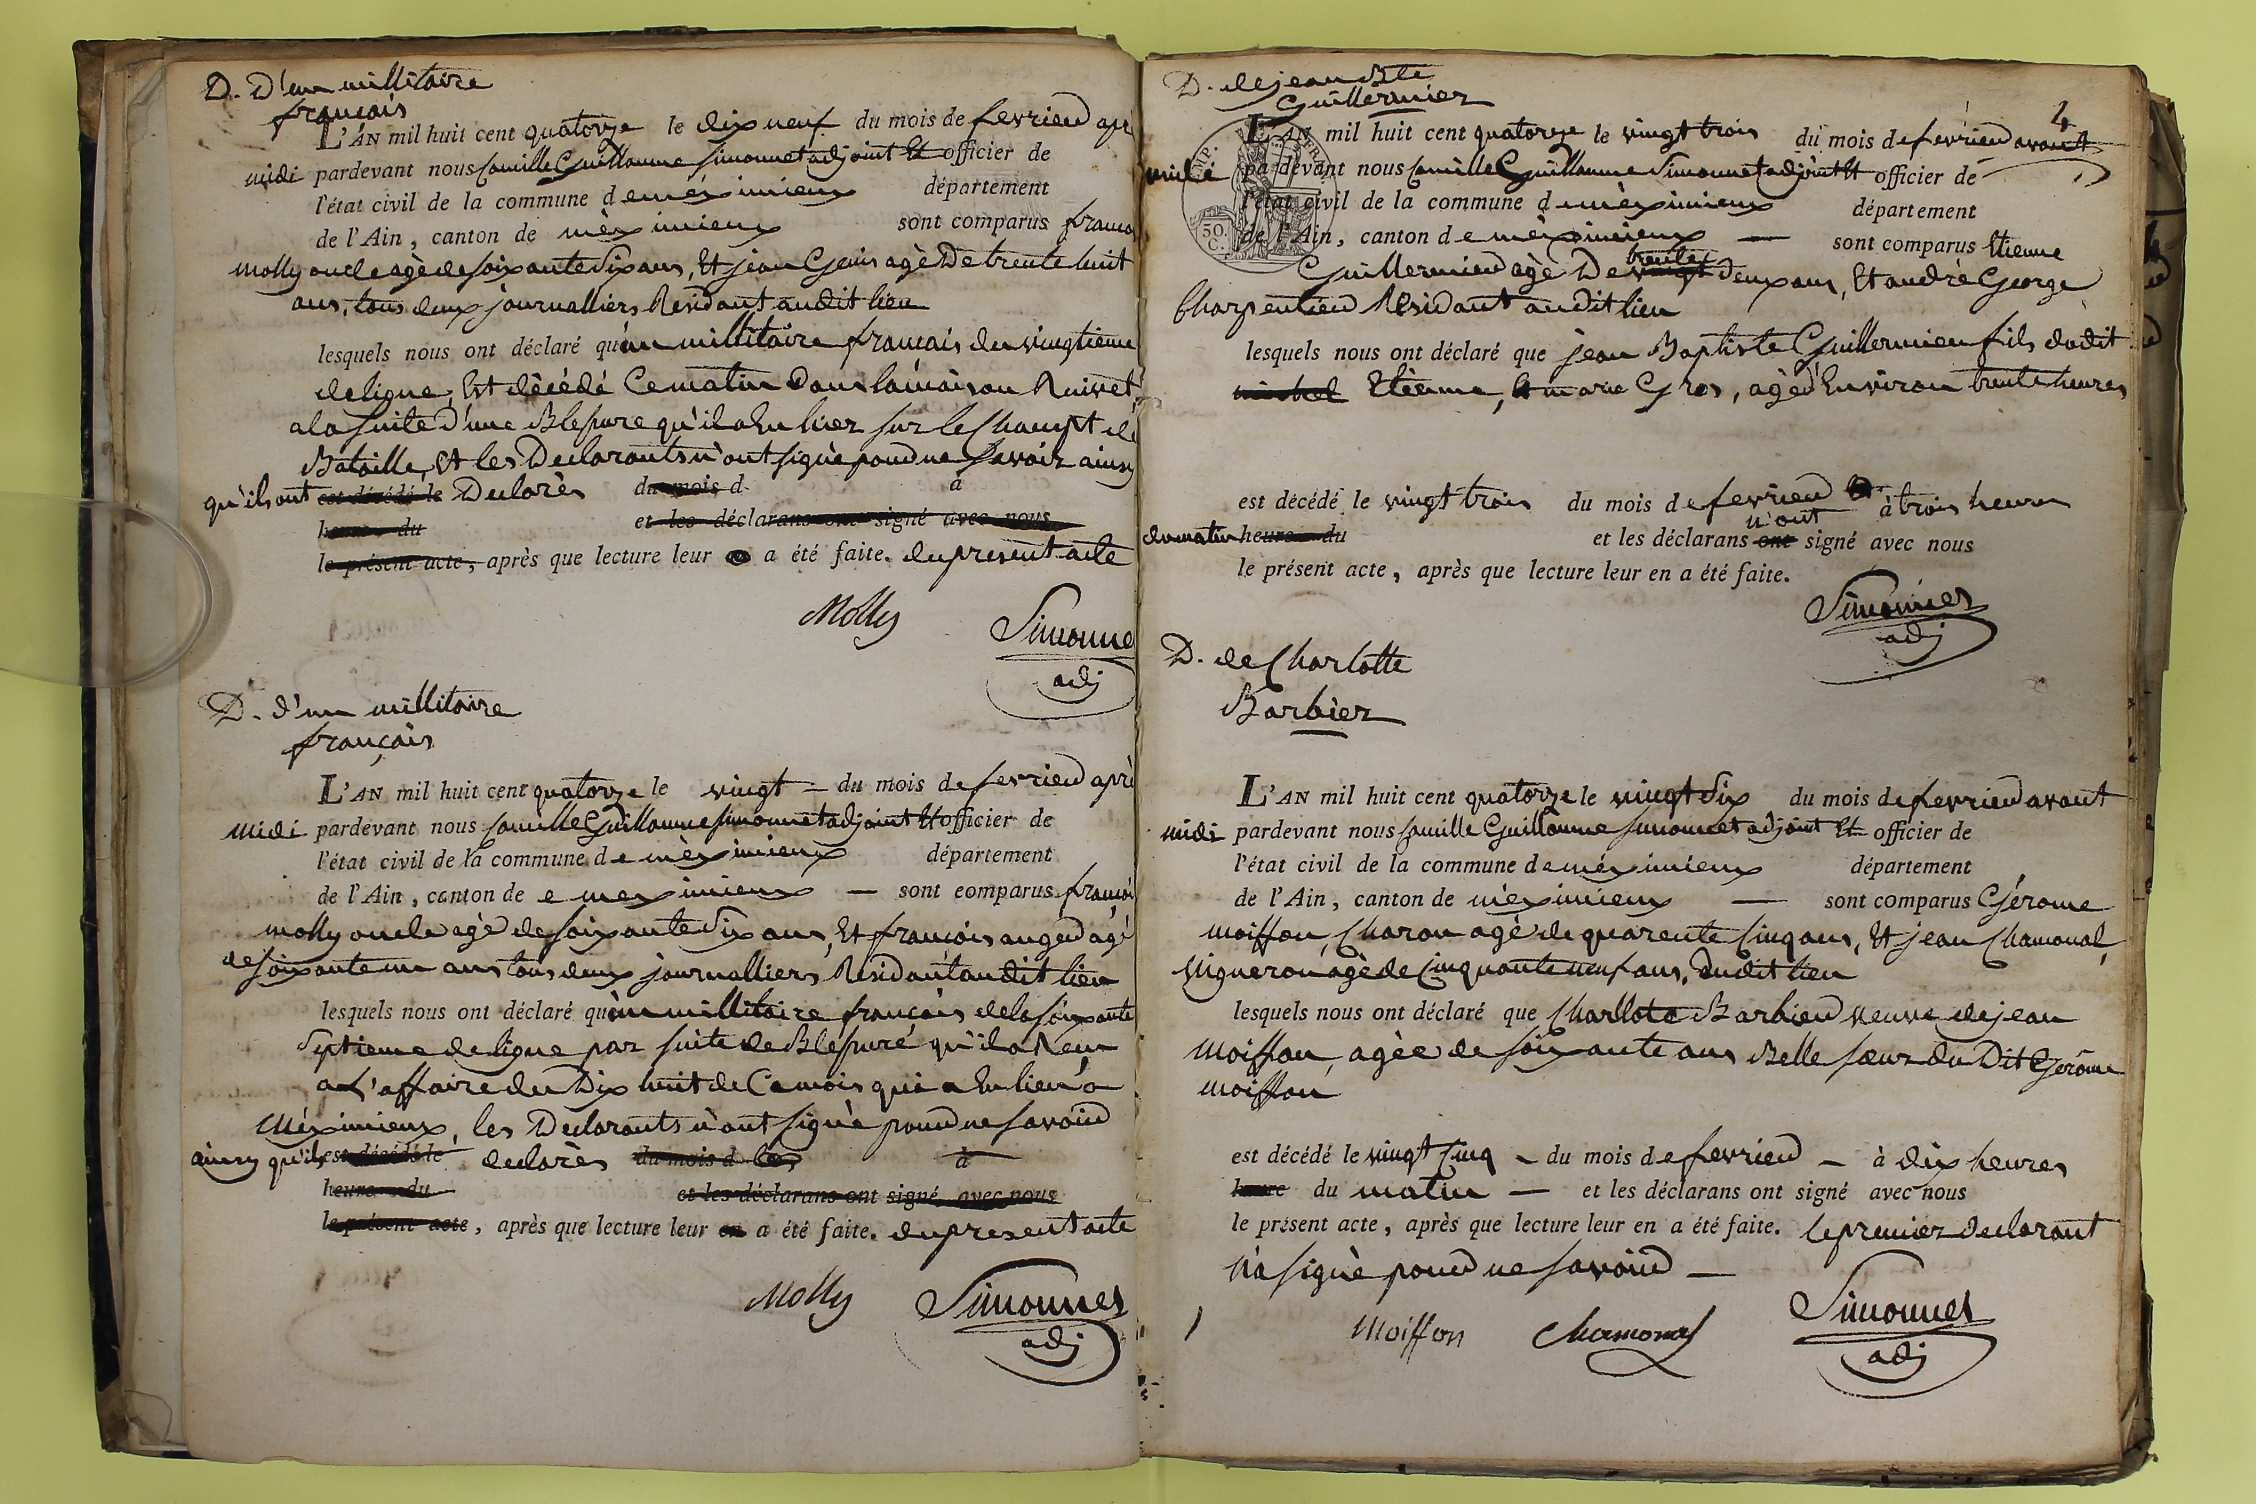 D. D'un millitaire
français
L'AN mil huit cent quatorze le dix neuf du mois de fevrier apr
midi pardevant nous Camille Guillaume Simonnet adjoint Et officier de
l'état civil de la commune de mèximieux département
de l'Ain, canton de mèximieux sont comparus franço
molly oncle agè de soixante dix ans, Et jean Genis agè De trente huit
ans, tous deux journalliers Residant audit lieu
lesquels nous ont déclaré qu'un millitaire français du vingtieme
de ligne, Est dècédé Ce matin Dans la maison Ruivet,
a la suite d'une Blessure qu'il a Eu hier sur le Champt de
Bataille, Et les Declarants n'ont signè pour ne savoir ainsy
qu'ils ont est décédé le Declarès du mois d à
heure du et les déclarans ont signé avec nous
le présent acte, après que lecture leur a été faite. du present acte
Molly Simonne
adj
D. d'un millitaire
français
L'AN mil huit cent quatorze le vingt du mois de fevrier aprè
midi pardevant nous Camille Guillaume Simonnet adjoint Et officier de
l'état civil de la commune de mèximieux département
de l'Ain, canton de e meximieux — sont comparus françoi
molly oncle agè de soixante dix ans, Et françois auger agé
de soixante un ans tous deux journalliers Residant audit lieu
lesquels nous ont déclaré qu'un millitaire français de la soixante
septieme de ligne par suite de Blessure qu'il a Reçu
a L'affaire du Dix huit de Ce mois qui a Eu lieu a
Mèximieux, les Declarants n'ont signè pour ne savoir
ainsy qu'ils est décédé le declarès du mois d à
heure du et les déclarans ont signé avec nous
le présent acte, après que lecture leur en a été faite. du present acte
Molly Simonnet
adj
D. de jean Bte
Guillermier
4
L'AN mil huit cent quatorze le vingt trois du mois de fevrier avant
midi pardevant nous Camille Guillaume Simonnet adjoint Et officier de
l'état civil de la commune de mèximieux département
de l'Ain, canton de mèximieux — sont comparus Etienne
trente
Guillermier agè De vingt deux ans, Et andrè George
Charpentier Residant audit lieu
lesquels nous ont déclaré que jean Baptiste Guillermier fils dudit
michel Etienne, Et marie Gros, agè d'Environ trente heures
est décédé le vingt trois du mois de fevrier à trois heures
n'ont
du matin heure du et les déclarans ont signé avec nous
le présent acte, après que lecture leur en a été faite.
Simonnet
adj
D. de Charlotte
Barbier
L'AN mil huit cent quatorze le vingt six du mois de fevrier avant
midi pardevant nous Camille Guillaume Simonnet adjoint Et officier de
l'état civil de la commune de mèximieux département
de l'Ain, canton de mèximieux — sont comparus Gérome
moiffon, Charon agè de quarente Cinq ans, Et jean Chamonal,
vigneron agè de Cinquante neuf ans, dudit lieu
lesquels nous ont déclaré que Charllote Barbier veuve de jean
moiffon, agèe de soixante ans Belle sœur du Dit Gérôme
moiffon
est décédé le vingt Cinq du mois de fevrier à dix heures
heure du matin — et les déclarans ont signé avec nous
le présent acte, après que lecture leur en a été faite. le premier declarant
n'a signè pour ne savoir —
Moiffon Chamonal Simonnet
adj